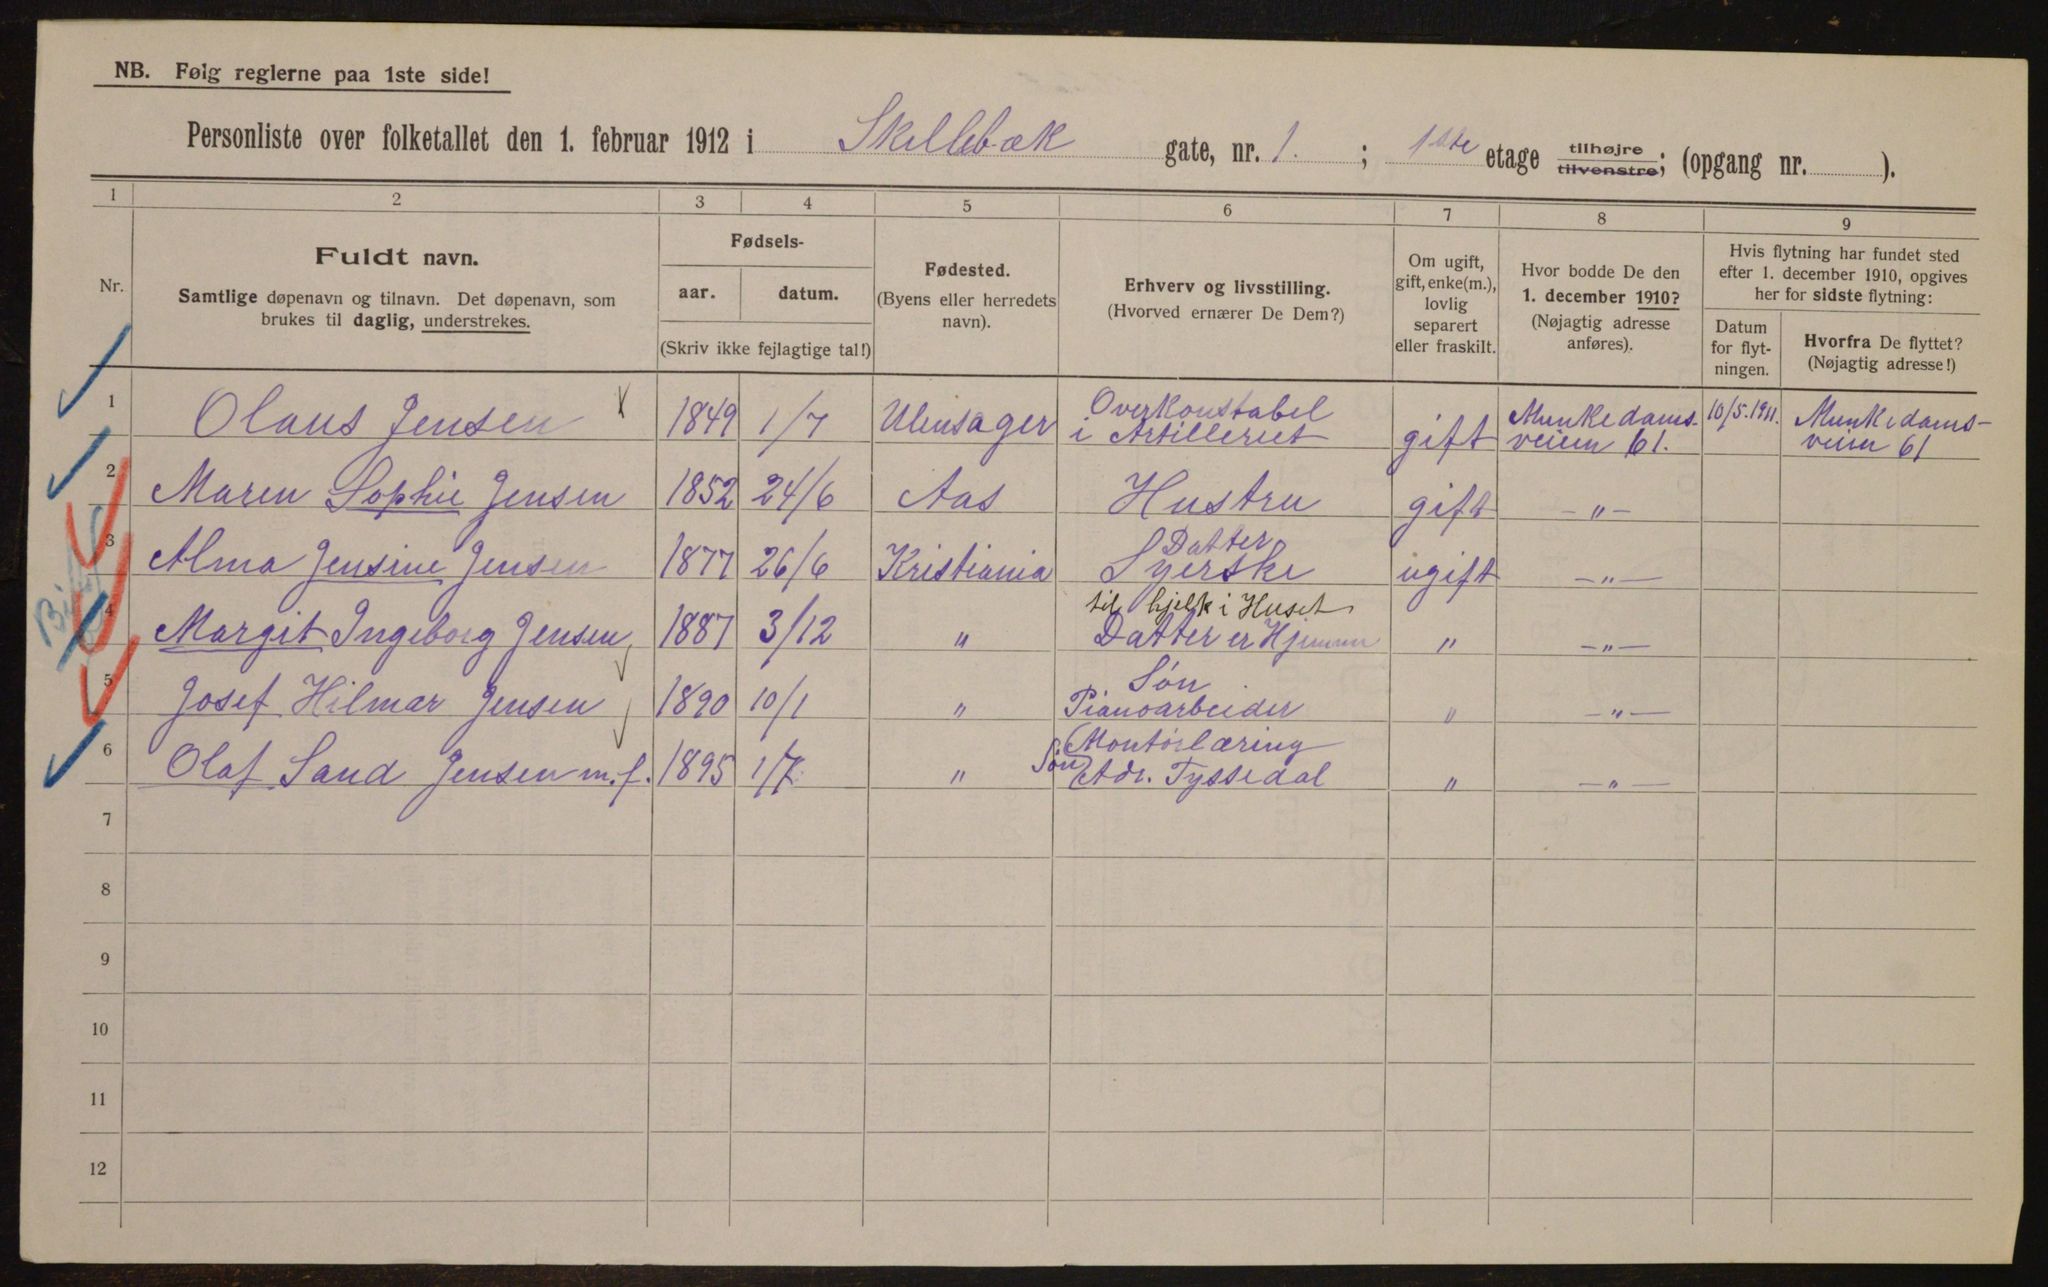 NB. Følg reglerne paa 1ste side!
Personliste over folketallet den 1. februar 1912 i Skillebæk gate, nr. 1. ; 1ste etage tilhøjre tilvenstre; (opgang nr. ).
1 2 3 4 5 6 7 8 9
Nr.
Fuldt navn.
Samtlige døpenavn og tilnavn. Det døpenavn, som
brukes til daglig, understrekes.
Fødsels-
aar. datum.
(Skriv ikke fejlagtige tal!)
Fødested.
(Byens eller herredets
navn).
Erhverv og livsstilling.
(Hvorved ernærer De Dem?)
Om ugift,
gift, enke(m.),
lovlig
separert
eller fraskilt.
Hvor bodde De den
1. december 1910?
(Nøjagtig adresse
anføres).
Hvis flytning har fundet sted
efter 1. december 1910, opgives
her for sidste flytning:
Datum
for flyt-
ningen.
Hvorfra De flyttet?
(Nøjagtig adresse!)
1 Olaus Jensen 1849 1/7 Ulensager Overkonstabel
i Artilleriet gift Munkedams-
veien 61. 10/5.1911. Munkedams-
veien 61
2 Maren Sophie Jensen 1852 24/6 Aas Hustru gift —"—
3 Alma Jensine Jensen 1877 26/6 Kristiania Datter
Syerske ugift —"—
til hjelp i Huset
4 Margit Ingeborg Jensen 1887 3/12 " Datter er Hjemme " —"—
5 Josef Hilmar Jensen 1890 10/1 " Søn
Pianoarbeider " —"—
6 Olaf Sand Jensen m.f. 1895 1/7 " Søn Montørlæring
Adr. Tyssedal " —"—
7
8
9
10
11
12